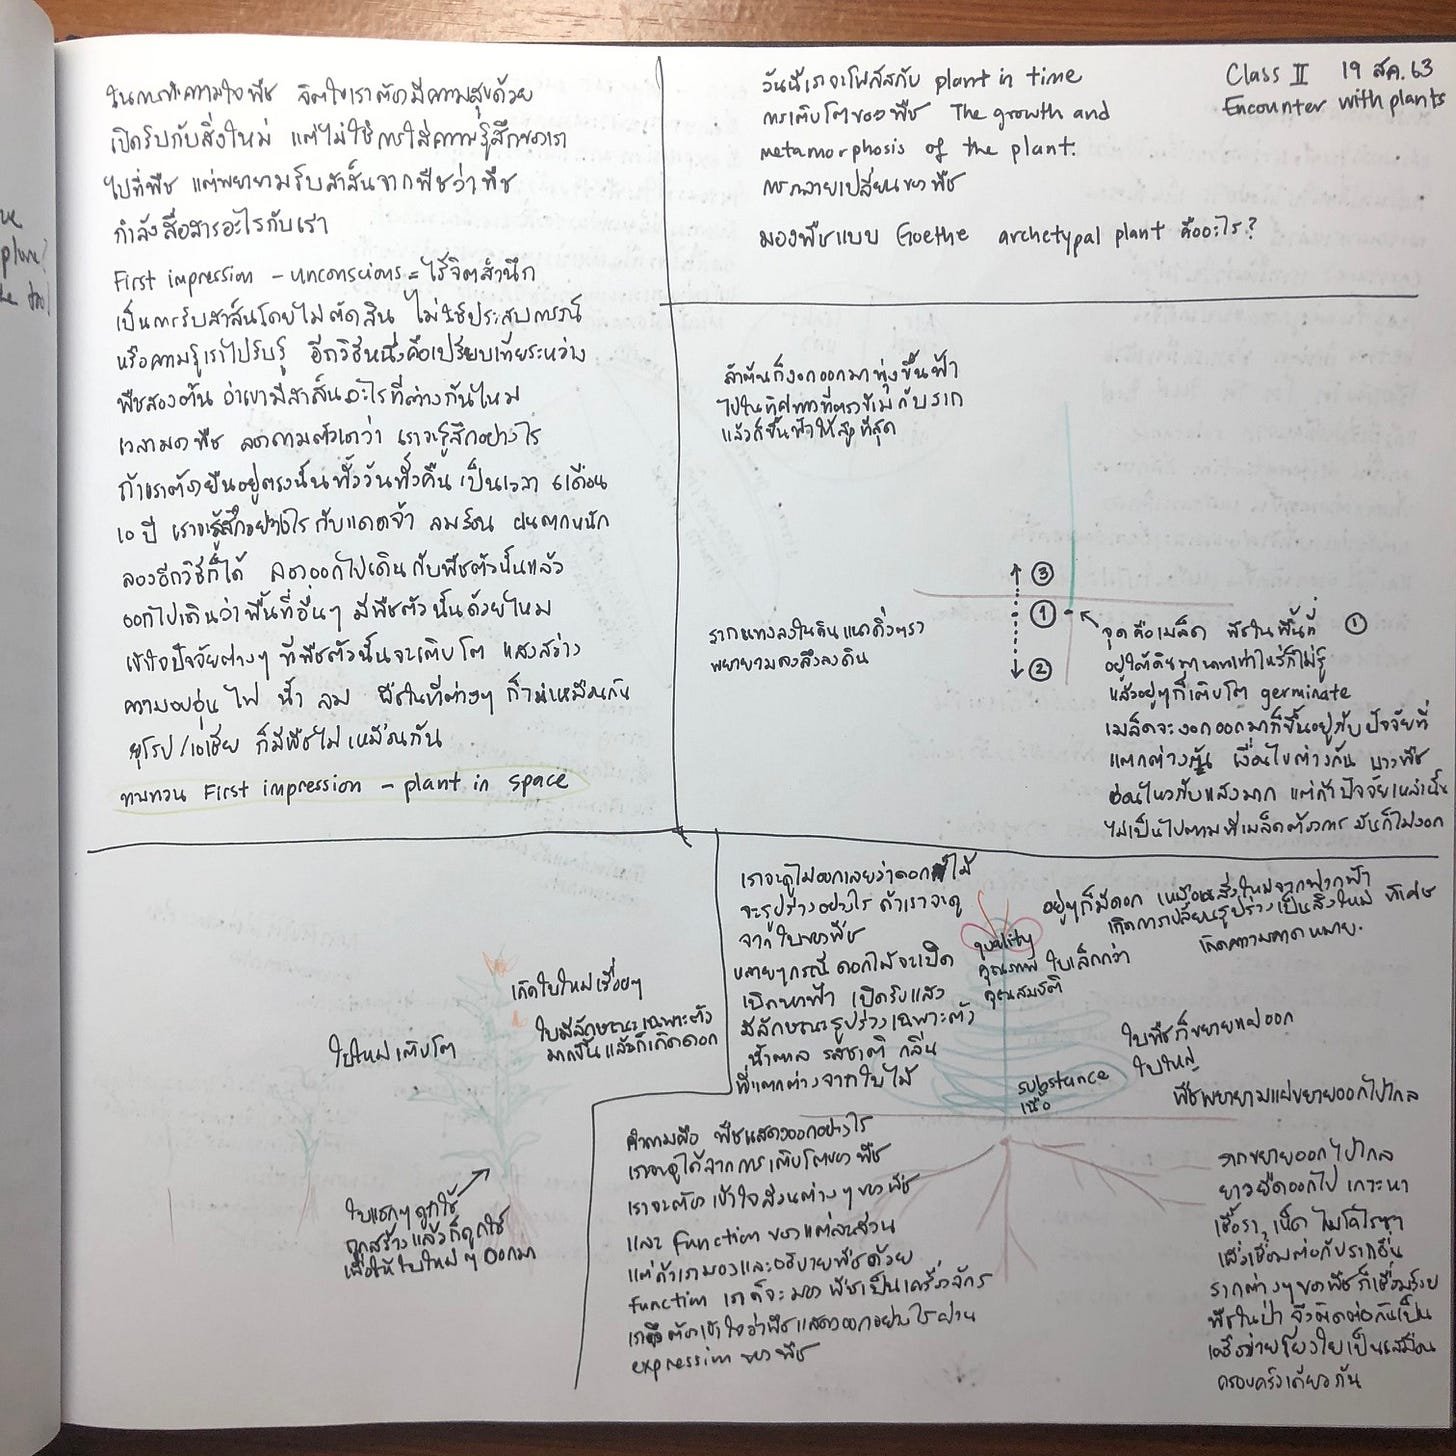 ในการทำความเข้าใจพืช จิตใจเราต้องมีความสุขด้วย
เปิดรับกับสิ่งใหม่ แต่ไม่ใช่การใส่ความรู้สึกของเรา
ไปที่พืช แต่พยายามรับสาส์นจากพืชว่าพืช
กำลังสื่อสารอะไรกับเรา
First impression – unconscious = ไร้จิตสำนึก
เป็นการรับสาส์นโดยไม่ตัดสิน ไม่ใช้ประสบการณ์
หรือความรู้เราไปรับรู้ อีกวิธีหนึ่งคือเปรียบเทียบระหว่าง
พืชสองต้น ว่าเขามีสาส์นอะไรที่ต่างกันไหม
เวลามองพืช ลองถามตัวเองว่า เราจะรู้สึกอย่างไร
ถ้าเราต้องยืนอยู่ตรงนั้นทั้งวันทั้งคืน เป็นเวลา 6 เดือน
10 ปี เราจะรู้สึกอย่างไร กับแดดจ้า ลมร้อน ฝนตกหนัก
ลองอีกวิธีก็ได้ ลองออกไปเดินกับพืชตัวนั้นแล้ว
ออกไปเดินว่าพื้นที่อื่นๆ มีพืชตัวนั้นด้วยไหม
เข้าใจปัจจัยต่างๆ ที่พืชตัวนั้นจะเติบโต แสงสว่าง
ความอบอุ่น ไฟ น้ำ ลม พืชในที่ต่างๆ ก็ไม่เหมือนกัน
ยุโรป/เอเชีย ก็มีพืชไม่เหมือนกัน
ทบทวน First impression – plant in space
วันนี้เราจะโฟกัสกับ plant in time
การเติบโตของพืช The growth and
metamorphosis of the plant.
การกลายเปลี่ยนของพืช
มองพืชแบบ Goethe archetypal plant คืออะไร?
Class II 19 สค. 63
Encounter with plants
ลำต้นก็งอกออกมาพุ่งขึ้นฟ้า
ไปในทิศทางที่ตรงข้ามกับราก
แล้วก็ขึ้นฟ้าให้สูงที่สุด
รากแทงลงในดินแนวดิ่งตรง
พยายามลงลึงลงดิน
③
①
②
จุดคือเมล็ด พืชในพื้นที่ ①
อยู่ใต้ดินมานานเท่าไหร่ก็ไม่รู้
แล้วอยู่ๆก็เติบโต germinate
เมล็ดจะงอกออกมาก็ขึ้นอยู่กับปัจจัยที่
แตกต่างกัน เงื่อนไขต่างกัน บางพืช
อ่อนไหวกับแสงมาก แต่ถ้าปัจจัยเหล่านั้น
ไม่เป็นไปตามที่เมล็ดต้องการ มันก็ไม่งอก
เกิดใบใหม่เรื่อยๆ
ใบใหม่เติบโต
ใบมีลักษณะเฉพาะตัว
มากขึ้น แล้วก็เกิดดอก
ใบแรกๆ ถูกใช้
ถูกสร้างแล้วก็ถูกใช้
เพื่อให้ใบใหม่ๆ ออกมา
เราจะดูไม่ออกเลยว่าดอกไม้
จะรูปร่างอย่างไร ถ้าเราจะดู
จากใบของพืช
หลายๆกรณี ดอกไม้จะเปิด
เบิกหาฟ้า เปิดรับแสง
มีลักษณะรูปร่างเฉพาะตัว
น้ำตาล รสชาติ กลิ่น
ที่แตกต่างจากใบไม้
quality
คุณภาพ ใบเล็กกว่า
คุณสมบัติ
อยู่ๆก็มีดอก เหมือนสิ่งใหม่จากฟากฟ้า
เกิดการเปลี่ยนรูปร่างเป็นสิ่งใหม่ พิเศษ
เกิดความคาดหมาย.
ใบพืชก็ขยายแผ่ออก
ใบใหญ่
substance
เนื้อ
พืชพยายามแผ่ขยายออกไปไกล
คำถามคือ พืชแสดงออกอย่างไร
เราจะดูได้จากการเติบโตของพืช
เราจะต้องเข้าใจส่วนต่างๆ ของพืช
และ function ของแต่ละส่วน
แต่ถ้าเรามองและอธิบายพืชด้วย
function เราก็จะมองพืชเป็นเครื่องจักร
ต้องเข้าใจว่าพืชแสดงออกอย่างไรผ่าน
expression ของพืช
รากขยายออกไปไกล
ยาวยืดออกไป เกาะหา
เชื้อรา, เห็ด ไมโคไรซา
เพื่อเชื่อมต่อกับรากอื่น
รากต่างๆของพืชก็เชื่อมโยง
พืชในป่า จึงติดต่อกันเป็น
เครือข่ายโยงใยเป็นเสมือน
ครอบครัวเดียวกัน